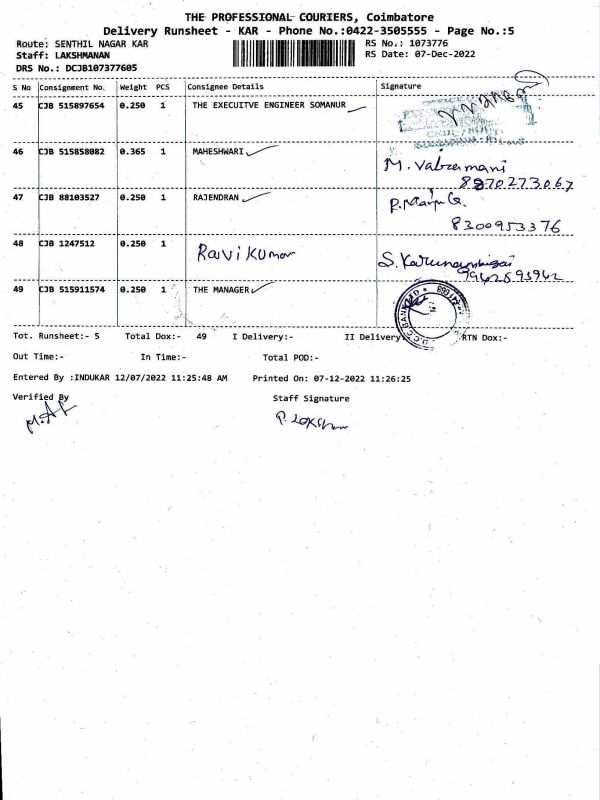 THE PROFESSIONAL COURIERS, Coimbatore
Delivery Runsheet - KAR - Phone No.:0422-3505555 - Page No.:5
Route: SENTHIL NAGAR KAR RS No.: 1073776
Staff: LAKSHMANAN RS Date: 07-Dec-2022
DRS No.: DCJB107377605
S No Consignment No. Weight PCS Consignee Details Signature
45 CJB 515897654 0.250 1 THE EXECUITVE ENGINEER SOMANUR
46 CJB 515858082 0.365 1 MAHESHWARI
8870273067
47 CJB 88103527 0.250 1 RAJENDRAN
8300953376
48 CJB 1247512 0.250 1 Ravi Kumar
49 CJB 515911574 0.250 1 THE MANAGER
Tot. Runsheet:- 5 Total Dox:- 49 I Delivery:- II Delivery RTN Dox:-
Out Time:- In Time:- Total POD:-
Entered By :INDUKAR 12/07/2022 11:25:48 AM Printed On: 07-12-2022 11:26:25
Verified By Staff Signature